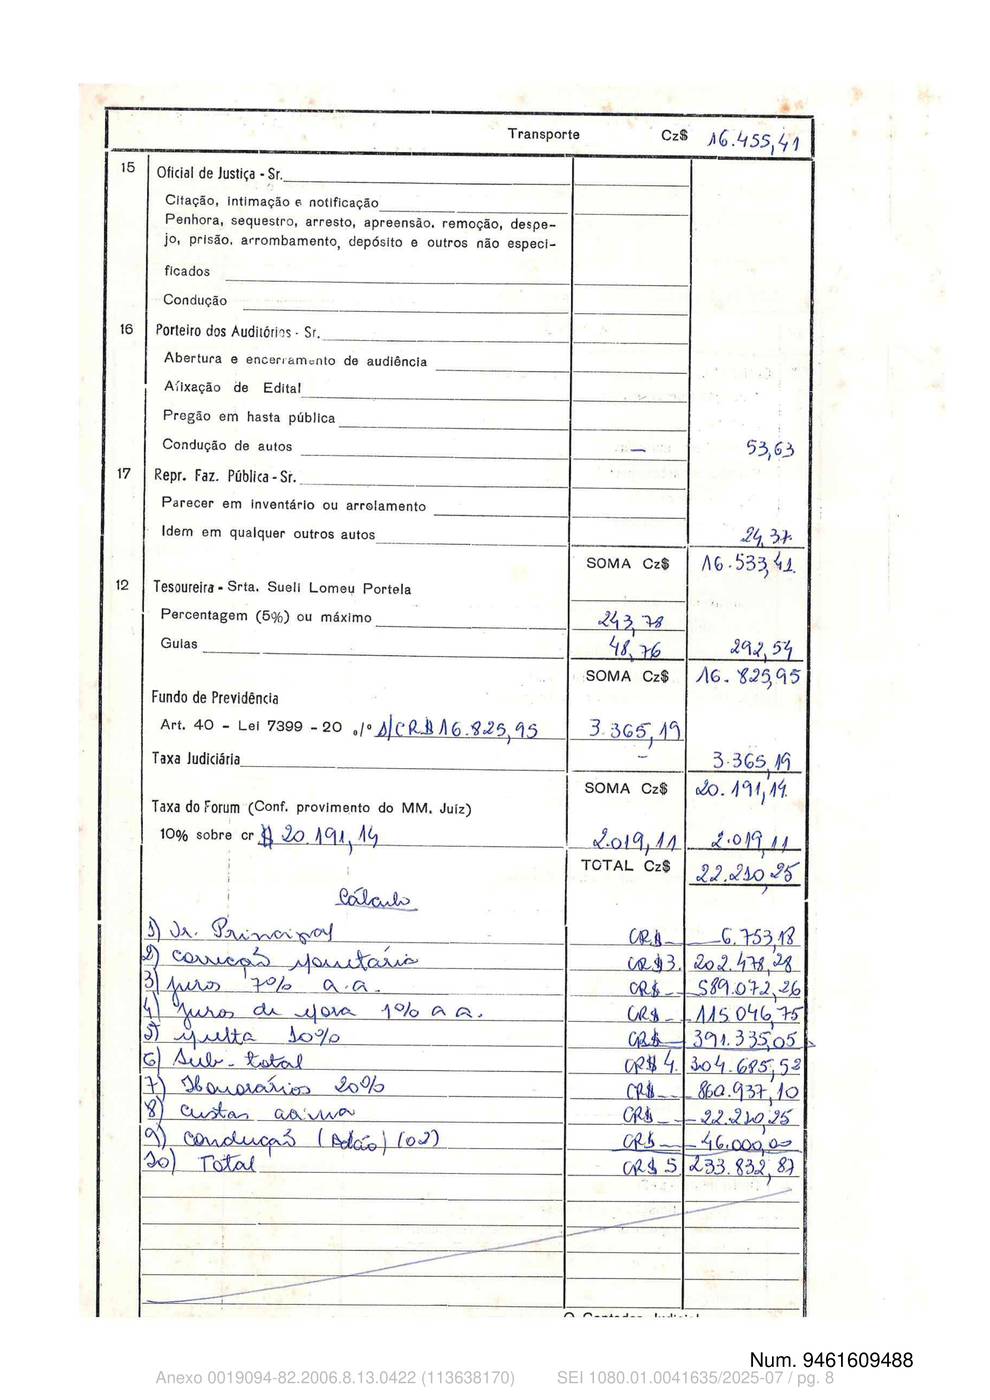 Transporte Cz$ 16.455,41
15 Oficial de Justiça - Sr.
Citação, intimação e notificação
Penhora, sequestro, arresto, apreensão, remoção, despe-
jo, prisão, arrombamento, depósito e outros não especi-
ficados
Condução
16 Porteiro dos Auditórios - Sr.
Abertura e encerramento de audiência
Afixação de Edital
Pregão em hasta pública
Condução de autos — 53,63
17 Repr. Faz. Pública - Sr.
Parecer em inventário ou arrolamento
Idem em qualquer outros autos 24,37
SOMA Cz$ 16.533,41
12 Tesoureira - Srta. Sueli Lomeu Portela
Percentagem (5%) ou máximo 243,78
Guias 48,76 292,54
SOMA Cz$ 16.825,95
Fundo de Previdência
Art. 40 - Lei 7399 - 20 ./º S/CR$16.825,95 3.365,19
Taxa Judiciária - 3.365,19
SOMA Cz$ 20.191,14
Taxa do Forum (Conf. provimento do MM. Juiz)
10% sobre cr $ 20.191,14 2.019,11 2.019,11
TOTAL Cz$ 22.210,25
Cálculo
1) Vr. Principal CR$ 6.753,18
2) correção monetária CR$3.202.478,28
3) juros 7% a.a. CR$ 589.072,26
4) juros de mora 1% a a. CR$ 115.046,75
5) multa 10% CR$ 391.335,05
6) Sub-total CR$ 4.304.685,52
7) Honorários 20% CR$ 860.937,10
8) custas acima CR$ 22.210,25
9) condução (Adão) (02) CR$ 46.000,00
10) Total CR$ 5.233.832,87
Num. 9461609488
Anexo 0019094-82.2006.8.13.0422 (113638170) SEI 1080.01.0041635/2025-07 / pg. 8